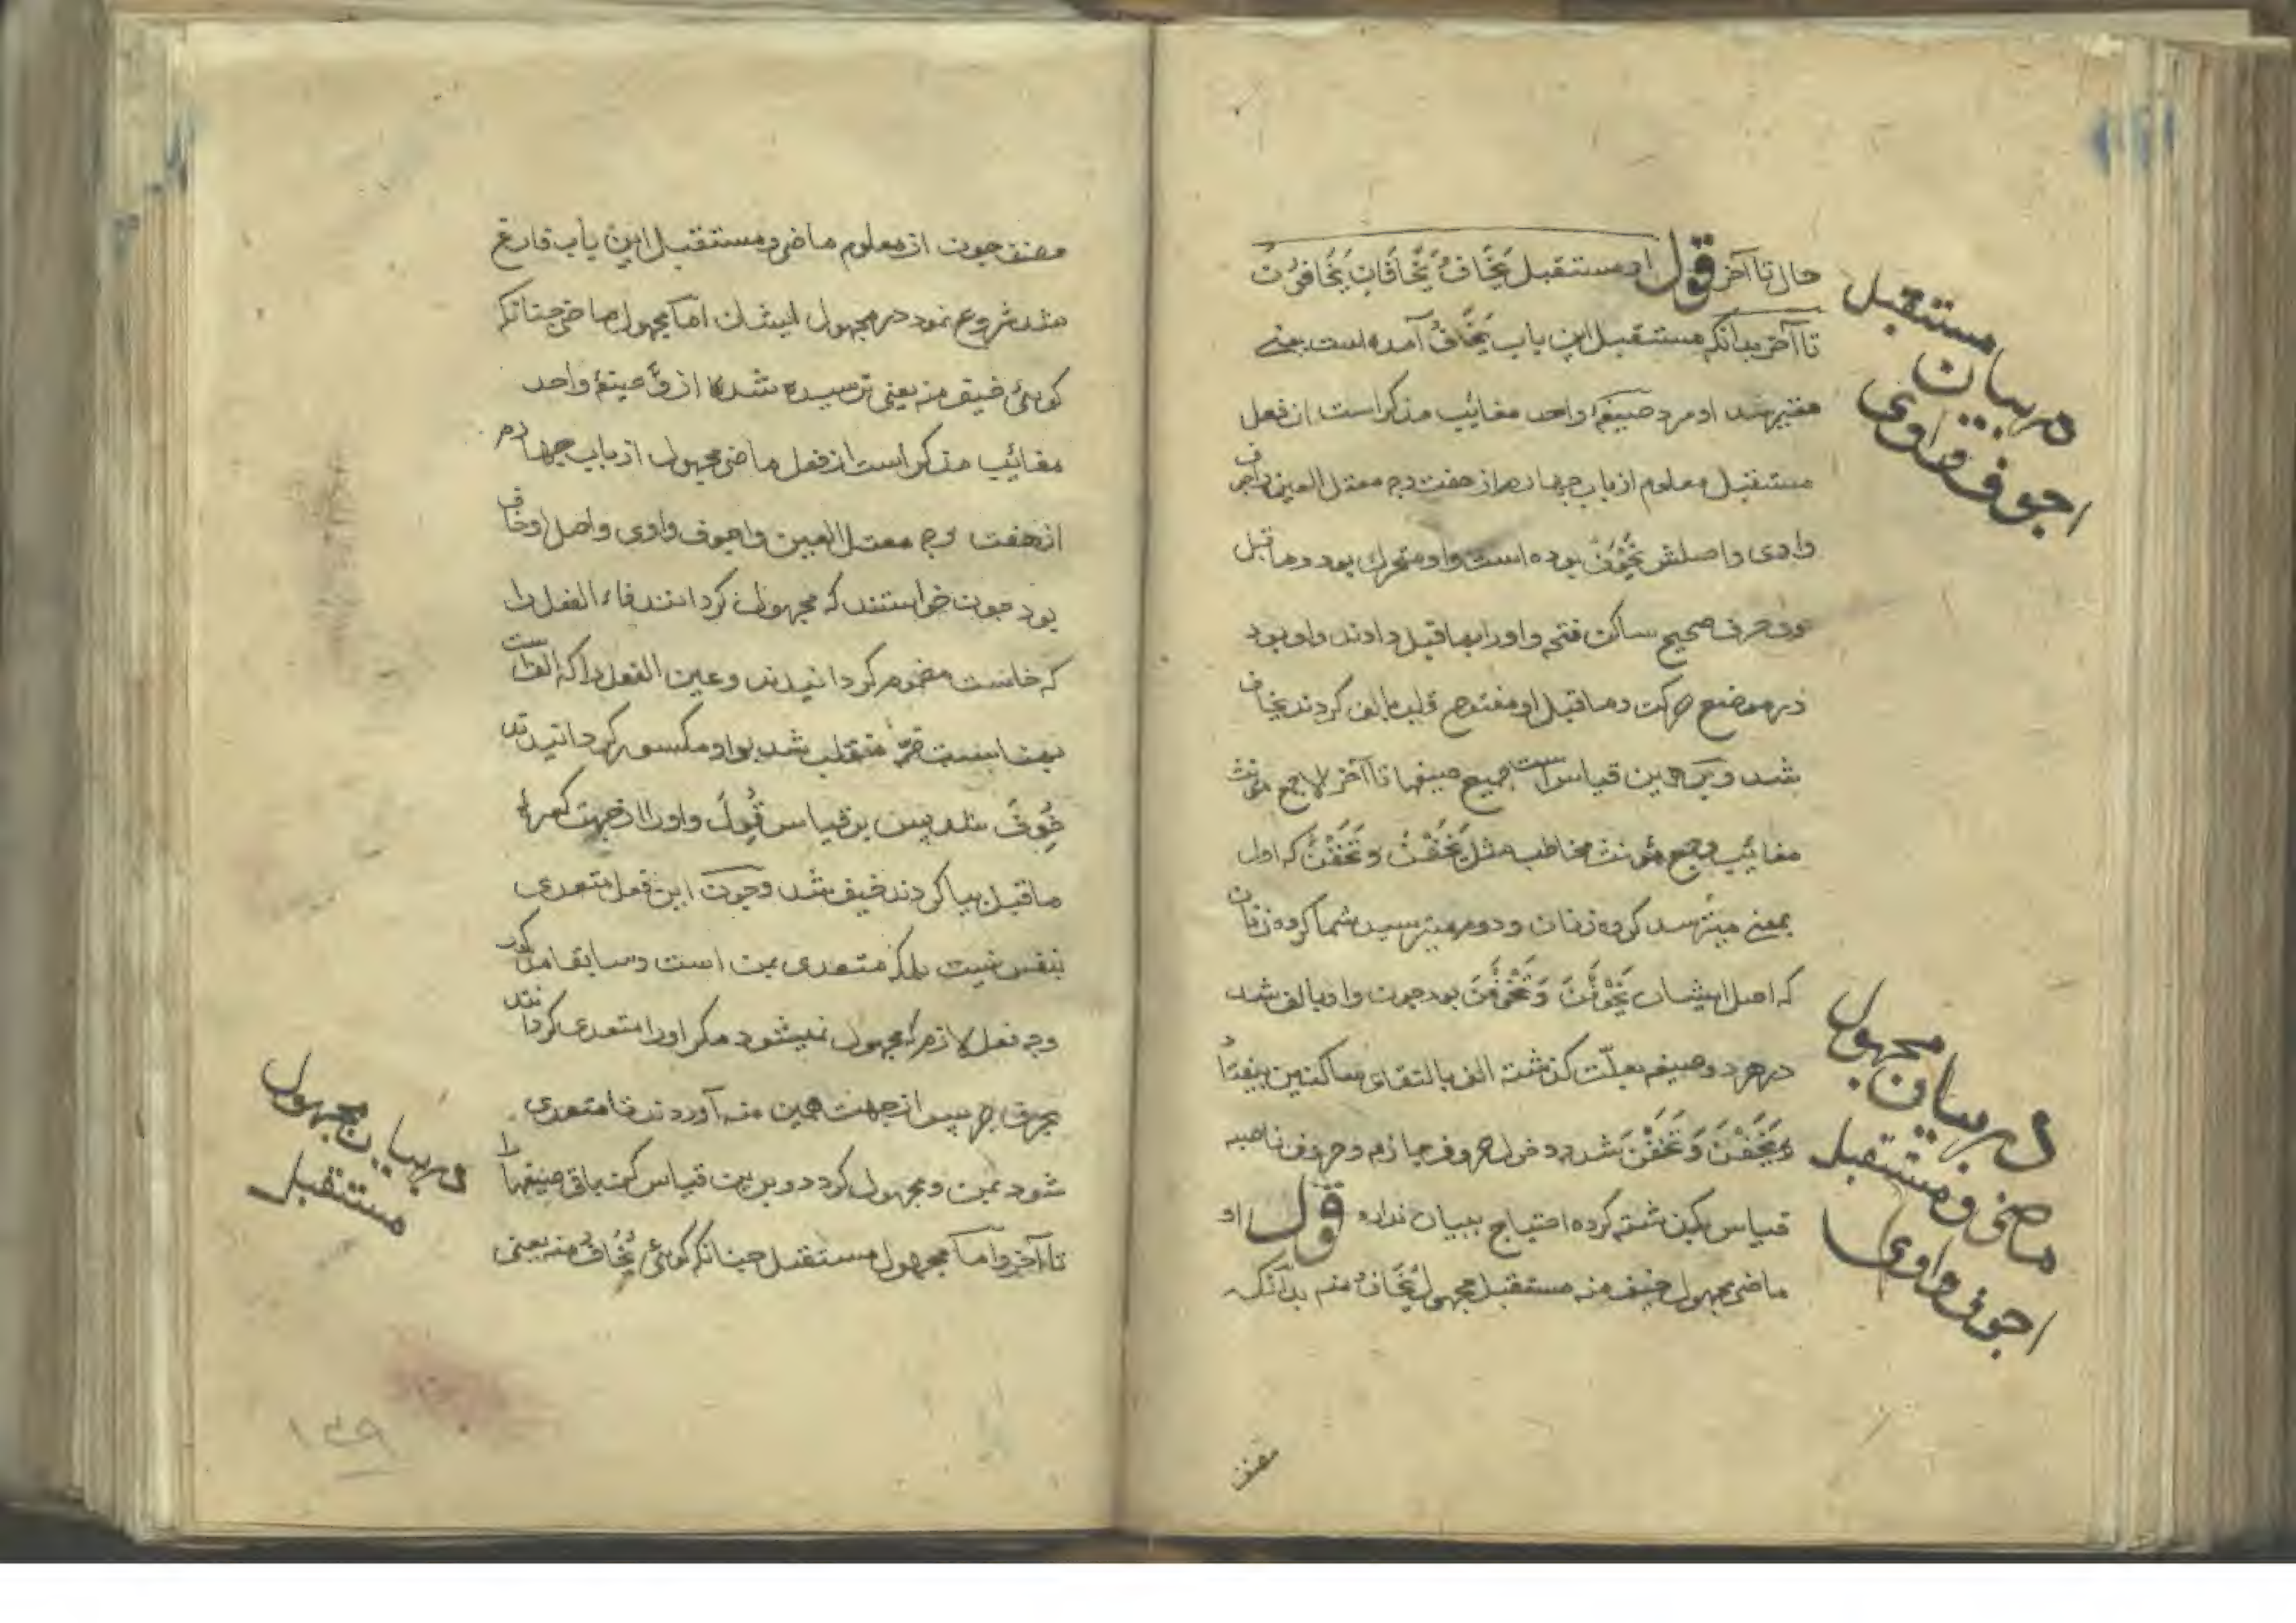 حال تا آخر قول او مستقبل یَخَافُ یَخَافَانِ یَخَافُونَ
تا آخر بدانکه مستقبل این باب یَخَافُ آمده است یعنی
او مرد صیغهٔ واحد مغائیب مذکر است از فعل
مستقبل معلوم از باب چهارم از هفت وجه معتل العین واجوف
واوی واصلش یَخْوَفُ بوده است واو متحرک بود وماقبل
وی حرف صحیح ساکن فتحه واو را بماقبل دادند واو بود
در موضع حرکت وماقبل او مفتوح قلب بالف کردند یخاف
شد وبر همین قیاس است جمیع صیغها تا آخر الا جمع مونث
مغائیب وجمع مؤنث مخاطب مثل یَخَفْنَ وَتَخَفْنَ که اول
بمعنی میترسد کروه زنان ودوم میترسید شما کروه زنان
که اصل ایشان یَخْوَفْنَ وَتَخْوَفْنَ بود چون واو بالف شد
در هر دو صیغه بعلّت کذشته الف بالتقای ساکنین بیفتاد
یَخَفْنَ وَتَخَفْنَ شد ودخول حروف جازم وحروف ناصبه
قیاس بکذشته کرده احتیاج ببیان ندارد قول او
ماضی مجهول خیف منه مستقبل مجهول یُخَافُ منه بدانکه
مصنف
مستقبل
در بیان
اجوف واوی
در بیان مجهول
ماضی ومستقبل
اجوف واوی
مصنف چون از معلوم ماضی ومستقبل این باب فارغ
شد شروع نمود در مجهول ایشان اما مجهول ماضی چنانکه
کوئی خیف منه یعنی ترسیده شد از وی صیغهٔ واحد
مغائیب مذکر است از فعل ماضی مجهول از باب چهارم
از هفت وجه معتل العین واجوف واوی واصل او خاف
بود چون خواستند که مجهول کردانند فاء الفعل را
که خاست مضموم کردانیدند وعین الفعل را که الف است
بمناسبت ضمّه منقلب شد بواو مکسور کردانیدند
خُوِفَ شد پس بر قیاس قُوِلَ واو را از جهت کسرهٔ
ماقبل بیا کردند خیف شد وچون این فعل متعدی
بنفس نیست بلکه متعدی بمن است وسابقا مذکور
وجه فعل لازم که مجهول نمیشود مکر او را متعدی کردانند
بحرف جر پس از جهت همین منه آوردند تا متعدی
شود بمن ومجهول کردد وبرین قیاس کن باقی صیغها را
تا آخر واما مجهول مستقبل چنانکه کوئی یُخَافُ منه یعنی
در بیان مجهول
مستقبل
۱۳۹